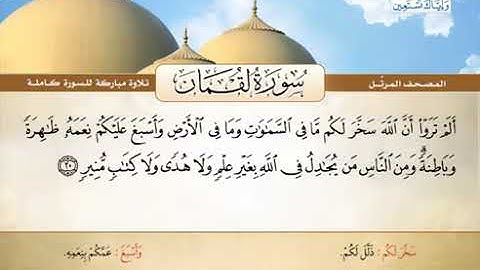 وَإِيَّاكَ نَسْتَعِينُ
المصحف المرتّل
سُورَةُ لُقْمَان
تلاوة مباركة للسورة كاملة
أَلَمْ تَرَوْا۟ أَنَّ ٱللَّهَ سَخَّرَ لَكُم مَّا فِى ٱلسَّمَٰوَٰتِ وَمَا فِى ٱلْأَرْضِ وَأَسْبَغَ عَلَيْكُمْ نِعَمَهُۥ ظَٰهِرَةً
وَبَاطِنَةً ۗ وَمِنَ ٱلنَّاسِ مَن يُجَٰدِلُ فِى ٱللَّهِ بِغَيْرِ عِلْمٍ وَلَا هُدًى وَلَا كِتَٰبٍ مُّنِيرٍ ٢٠
سَخَّرَ لَكُم : ذَلَّلَ لَكُمْ.
وَأَسْبَغَ : عَمَّكُمْ بِنِعَمِهِ.